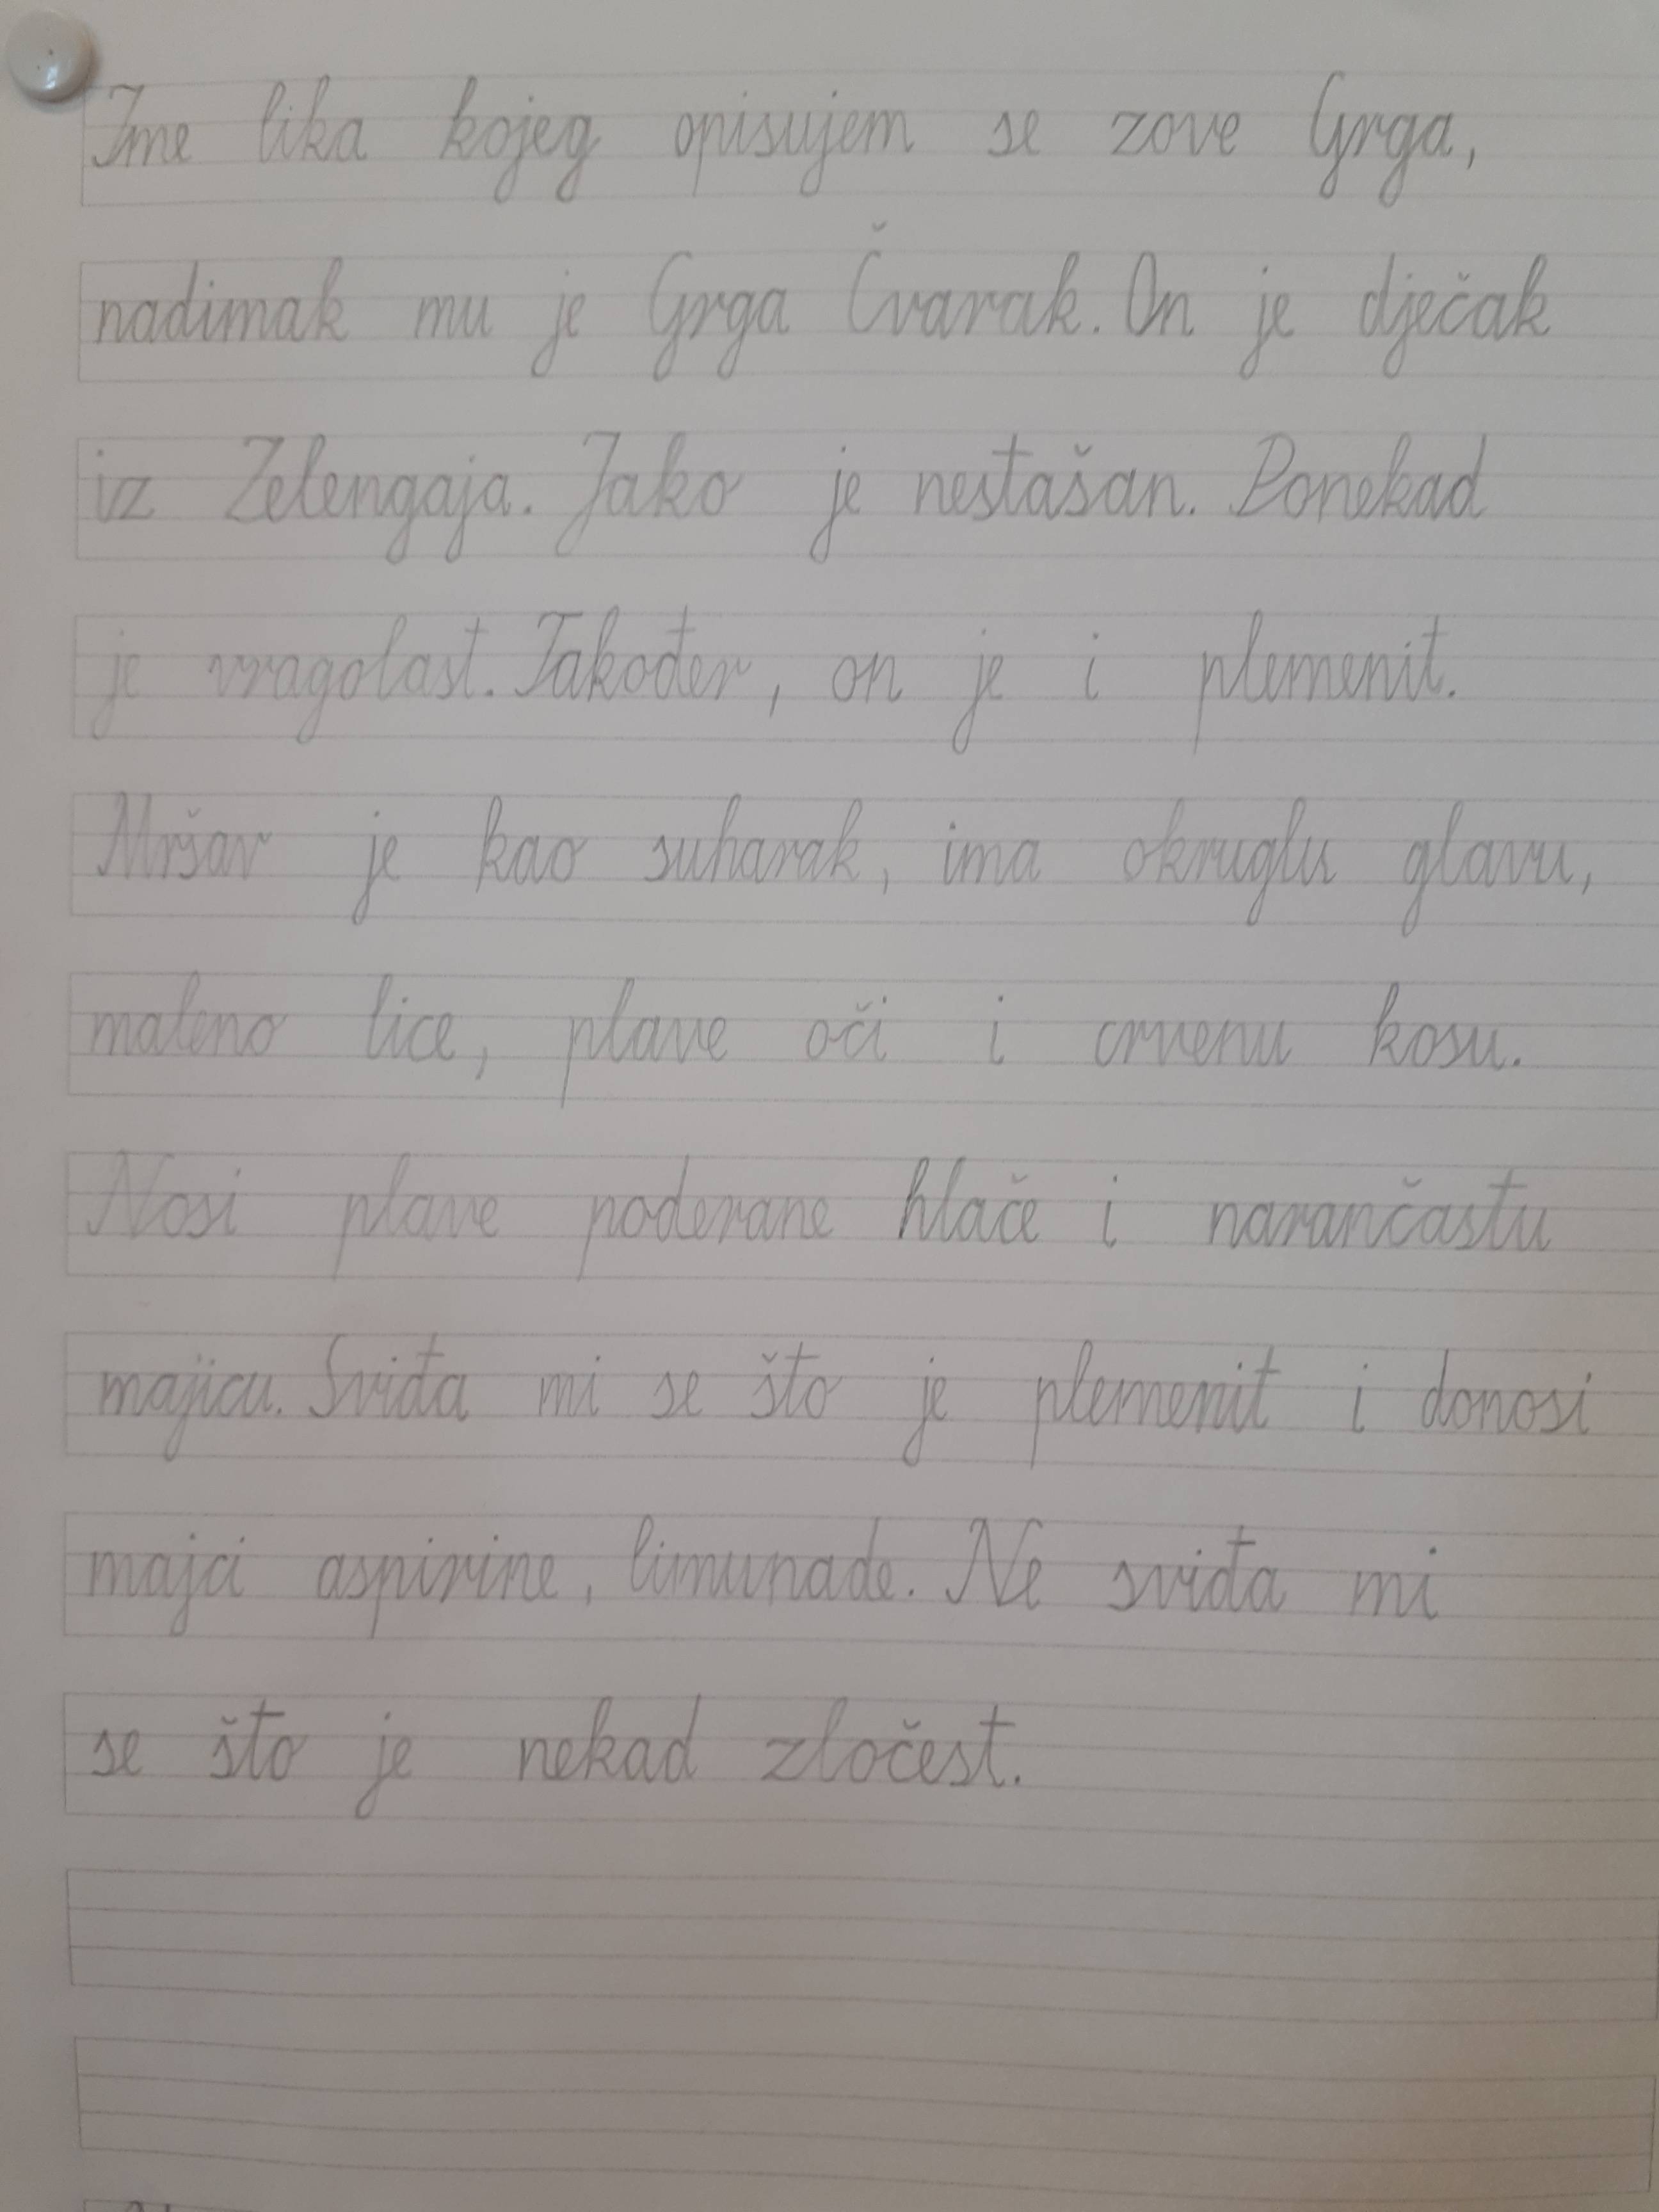 Ime lika kojeg opisujem se zove Grga,
nadimak mu je Grga Čvarak. On je dječak
iz Zelengaja. Jako je nestašan. Ponekad
je vragolast. Također, on je i plemenit.
Mršav je kao suharak, ima okruglu glavu,
maleno lice, plave oči i crvenu kosu.
Nosi plave poderane hlače i narančastu
majicu. Sviđa mi se što je plemenit i donosi
majci aspirine, limunade. Ne sviđa mi
se što je nekad zločest.